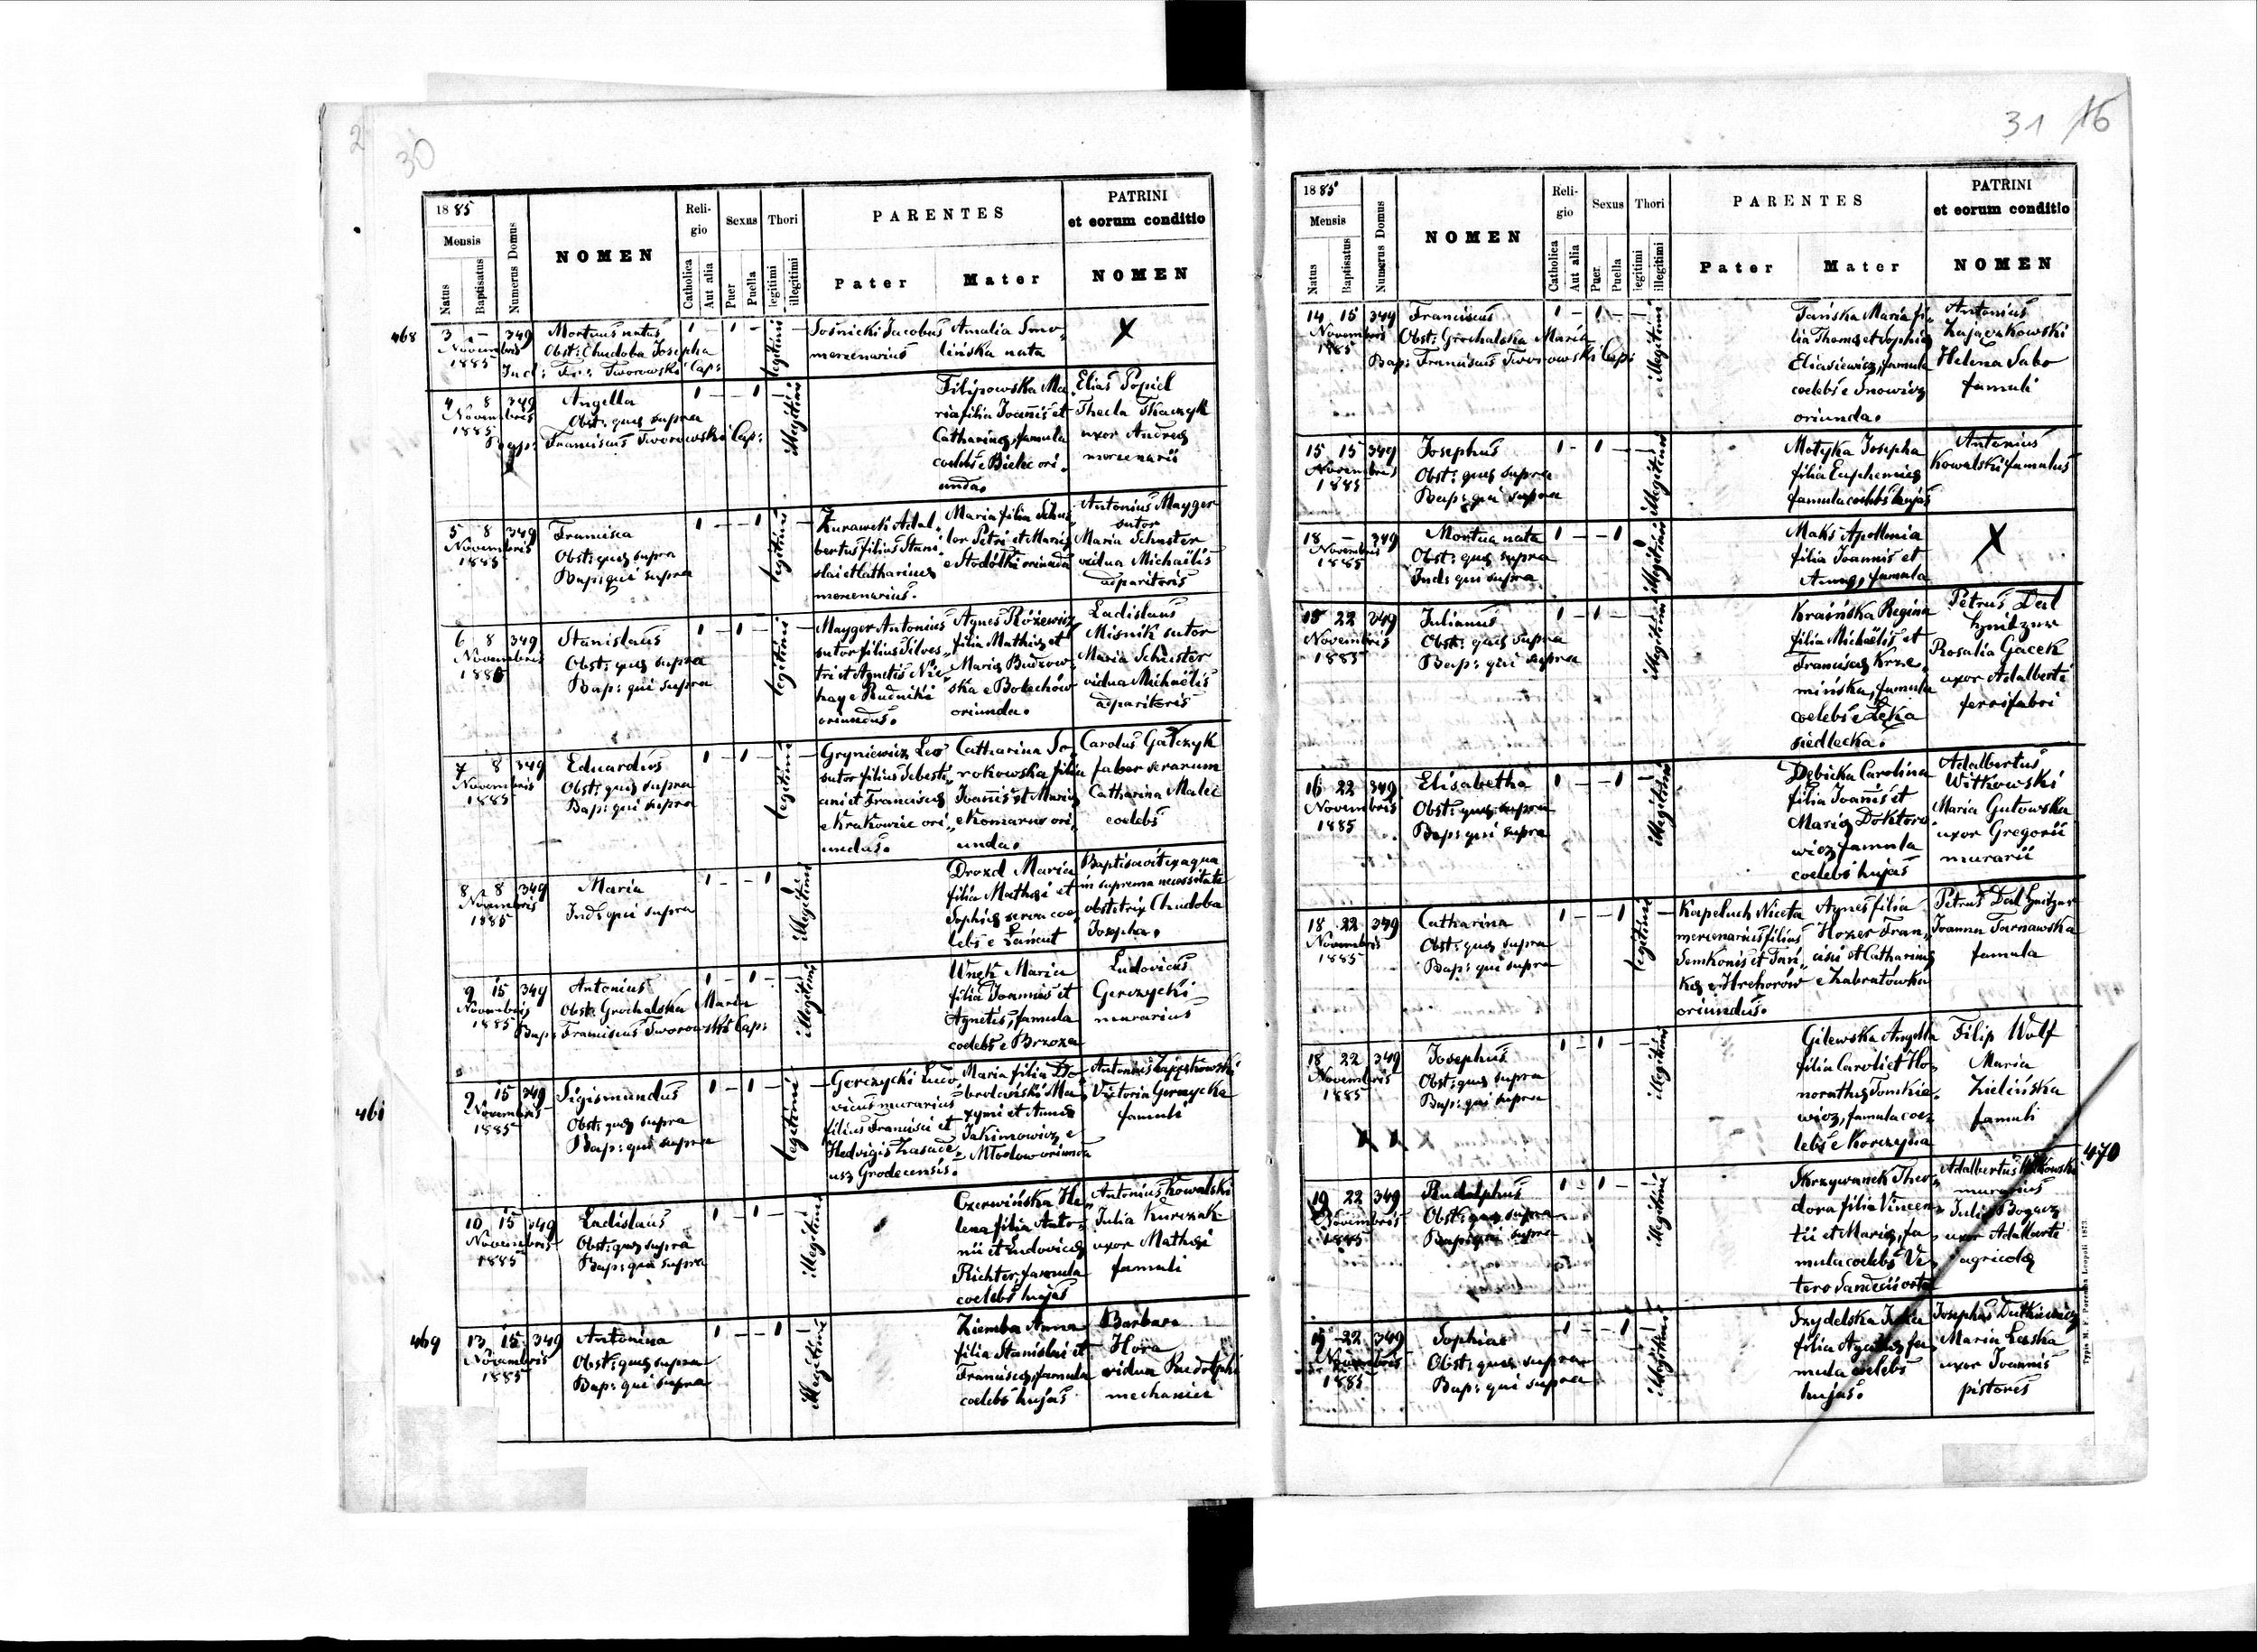 30
1885
Mensis
Natus
Baptisatus
Numerus Domus
NOMEN
Religio
Catholica
Aut alia
Sexus
Puer
Puella
Thori
legitimi
illegitimi
PARENTES
Pater
Mater
PATRINI
et eorum conditio
NOMEN
468
3 – 349
Novembris
1885
Mortuus natus
Obst: Chudoba Josepha
Ind: Fr: Tworowski Cap:
legitimi
Sośnicki Jacobus
mercenarius
Amalia Smo-
lińska nata
X
4 8 349
Novembris
1885
Angella
Obst: quæ supra
Bap: Franciscus Tworowski Cap:
illegitimi
Filipowska Ma
ria filia Joannis et
Catharinæ, famula
coelebs e Bielec ori-
unda.
Elias Popiel
Thecla Tkaczyk
uxor Andreæ
mercenarii
5 8 349
Novembris
1885
Francisca
Obst: quæ supra
Bap: qui supra
legitimi
Żurawek Adal-
bertus filius Stani-
slai et Catharinæ
mercenarius.
Maria filia
Petri et Mariæ
e Stodółki oriunda
Antonius Mayger
sutor
Maria Schuster
vidua Michaëlis
apparitoris
6 8 349
Novembris
1885
Stanislaus
Obst: quæ supra
Bap: qui supra
legitimi
Mayger Antonius
sutor filius Silves-
tri et Agnetis
e Rudniki
oriundus.
Agnes Różewicz
filia Mathiæ et
Mariæ Budzow-
ska e Bolechów
oriunda.
Ladislaus
Misnik sutor
Maria Schuster
vidua Michaëlis
apparitoris
7 8 349
Novembris
1885
Eduardus
Obst: quæ supra
Bap: qui supra
legitimi
Gryniewicz Leo
sutor filius Sebasti-
ani et Franciscæ
e Krakowiec ori-
undus.
Catharina So-
rokowska filia
Joannis et Mariæ
e Komarno ori-
unda.
Carolus Gałczyk
faber serarum
Catharina Malec
coelebs
8 8 349
Novembris
1885
Maria
Ind: qui supra
illegitimi
Drozd Maria
filia Mathæi et
Sophiæ serva coe-
lebs e Łańcut
Baptisavit ex aqua
in suprema necessitate
obstetrix Chudoba
Josepha.
9 15 349
Novembris
1885
Antonius
Obst: Grochalska Maria
Bap: Franciscus Tworowski Cap:
illegitimi
Wnęk Maria
filia Joannis et
Agnetis, famula
coelebs e Brzoza
Ludovicus
Gerczycki
murarius
461
9 15 349
Novembris
1885
Sigismundus
Obst: quæ supra
Bap: qui supra
legitimi
Gerczycki Ludo
vicus murarius
filius Francisci et
Hedvigis
Grodecensis.
Maria filia Do-
browolski Ma-
xymi et Annæ
Jakimowicz e
Młodow oriunda
Antonius
Victoria Gerczycka
famuli
10 15 349
Novembris
1885
Ladislaus
Obst: quæ supra
Bap: qui supra
illegitimi
Czerwińska He-
lena filia Anto-
nii et Ludovicæ
Richter, famula
coelebs hujas
Antonius Kowalski
Julia Kurczak
uxor Mathæi
famuli
469
13 15 349
Novembris
1885
Antonina
Obst: quæ supra
Bap: qui supra
illegitimi
Ziemba Anna
filia Stanislai et
Franciscæ, famula
coelebs hujas
Barbara
Hora
vidua Rudolphi
mechanici
31 16
1885
Mensis
Natus
Baptisatus
Numerus Domus
NOMEN
Religio
Catholica
Aut alia
Sexus
Puer
Puella
Thori
legitimi
illegitimi
PARENTES
Pater
Mater
PATRINI
et eorum conditio
NOMEN
14 15 349
Novembris
1885
Franciscus
Obst: Grochalska Maria
Bap: Franciscus Tworowski Cap:
illegitimi
Tańska Maria fi-
lia Thomæ et Sophiæ
Eliasiewicz, famula
coelebs e Snowicz
oriunda.
Antonius
Zajączkowski
Helena Sabo
famuli
15 15 349
Novembris
1885
Josephus
Obst: quæ supra
Bap: qui supra
illegitimi
Motyka Josepha
filia Euphemiæ
famula coelebs hujas
Antonius
Kowalski famulus
18 – 349
Novembris
1885
Mortua nata
Obst: quæ supra
Ind: qui supra
illegitimi
Maks Apollonia
filia Joannis et
Annæ, famula
X
15 22 349
Novembris
1885
Julianus
Obst: quæ supra
Bap: qui supra
illegitimi
Kraińska Regina
filia Michaëlis et
Franciscæ Krze-
mińska, famula
coelebs e Łęka
siedlecka.
Petrus
Rosalia Gacek
uxor Adalberti
ferrifabri
16 22 349
Novembris
1885
Elisabetha
Obst: quæ supra
Bap: qui supra
illegitimi
Dębicka Carolina
filia Joannis et
Mariæ Doktoro
wicz famula
coelebs hujas
Adalbertus
Witkowski
Maria Gutowska
uxor Gregorii
murarii
18 22 349
Novembris
1885
Catharina
Obst: quæ supra
Bap: qui supra
legitimi
Kapeluch Niceta
mercenarius filius
Semkonis et Pari-
kæ e Hrehorów
oriundus.
Agnes filia
Hozer Fran-
cisci et Catharinæ
e Zabratówka
Petrus
Joanna Tarnawska
famula
18 22 349
Novembris
1885
Josephus
Obst: quæ supra
Bap: qui supra
X X X
illegitimi
Gilewska Angella
filia Caroli et Ho-
norathæ Tomkie-
wicz, famula coe-
lebs e Korczyna
Filip Wolf
Maria
Zielińska
famuli
470
19 22 349
Novembris
1885
Rudolphus
Obst: quæ supra
Bap: qui supra
illegitimi
Skrzywanek Theo-
dora filia Vincen-
tii et Mariæ, fa-
mula coelebs Ve-
tero Sandecii orta
Adalbertus Witkowski
murarius
Julia Bogacz
uxor Adalberti
agricolæ
15 22 349
Novembris
1885
Sophia
Obst: quæ supra
Bap: qui supra
illegitimi
Szydelska Julia
filia Agathæ fa-
mula coelebs
hujas.
Josephus Dutkiewicz
Maria Leska
uxor Joannis
pistoris
Typis M. F. Poremba Leopoli 1873.